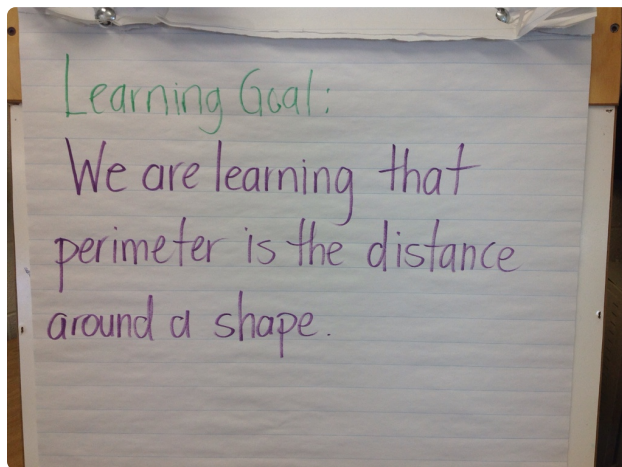 Learning Goal:
We are learning that
perimeter is the distance
around a shape.